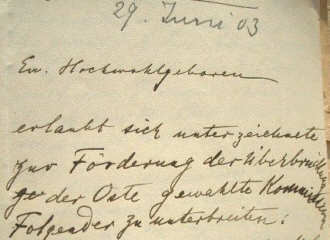 29. Juni 03
Ew. Hochwohlgeboren
erlaubt sich unterzeichnete
zur Förderung der Überbrückung
der Oste gewählte Kommission
Folgendes zu unterbreiten: